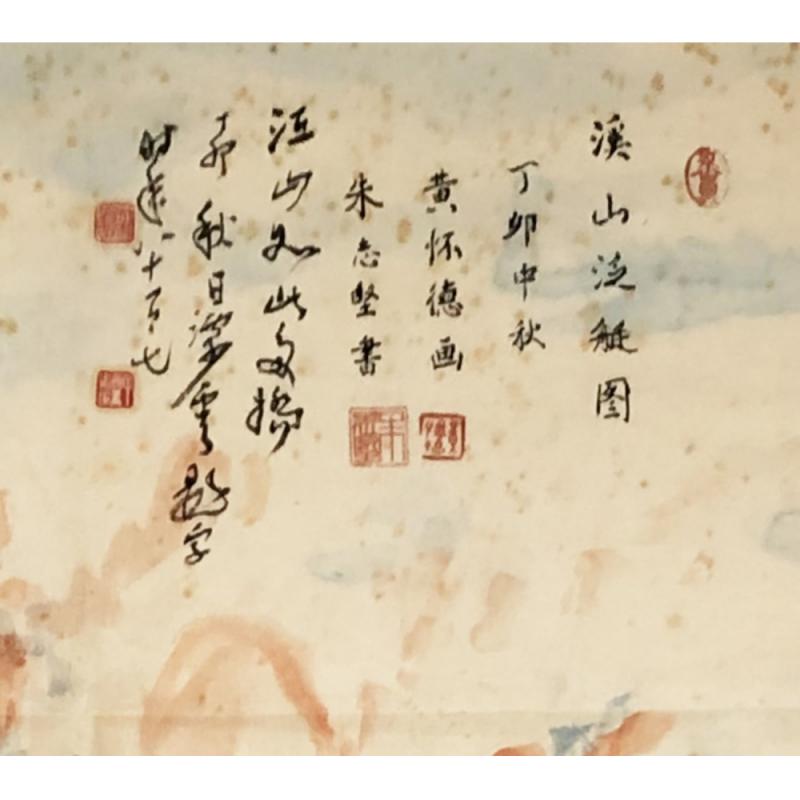 溪山泛艇图
丁卯中秋
黄怀德画
朱志坚书
江山如此多娇
丁卯秋日云题字
时年八十有七